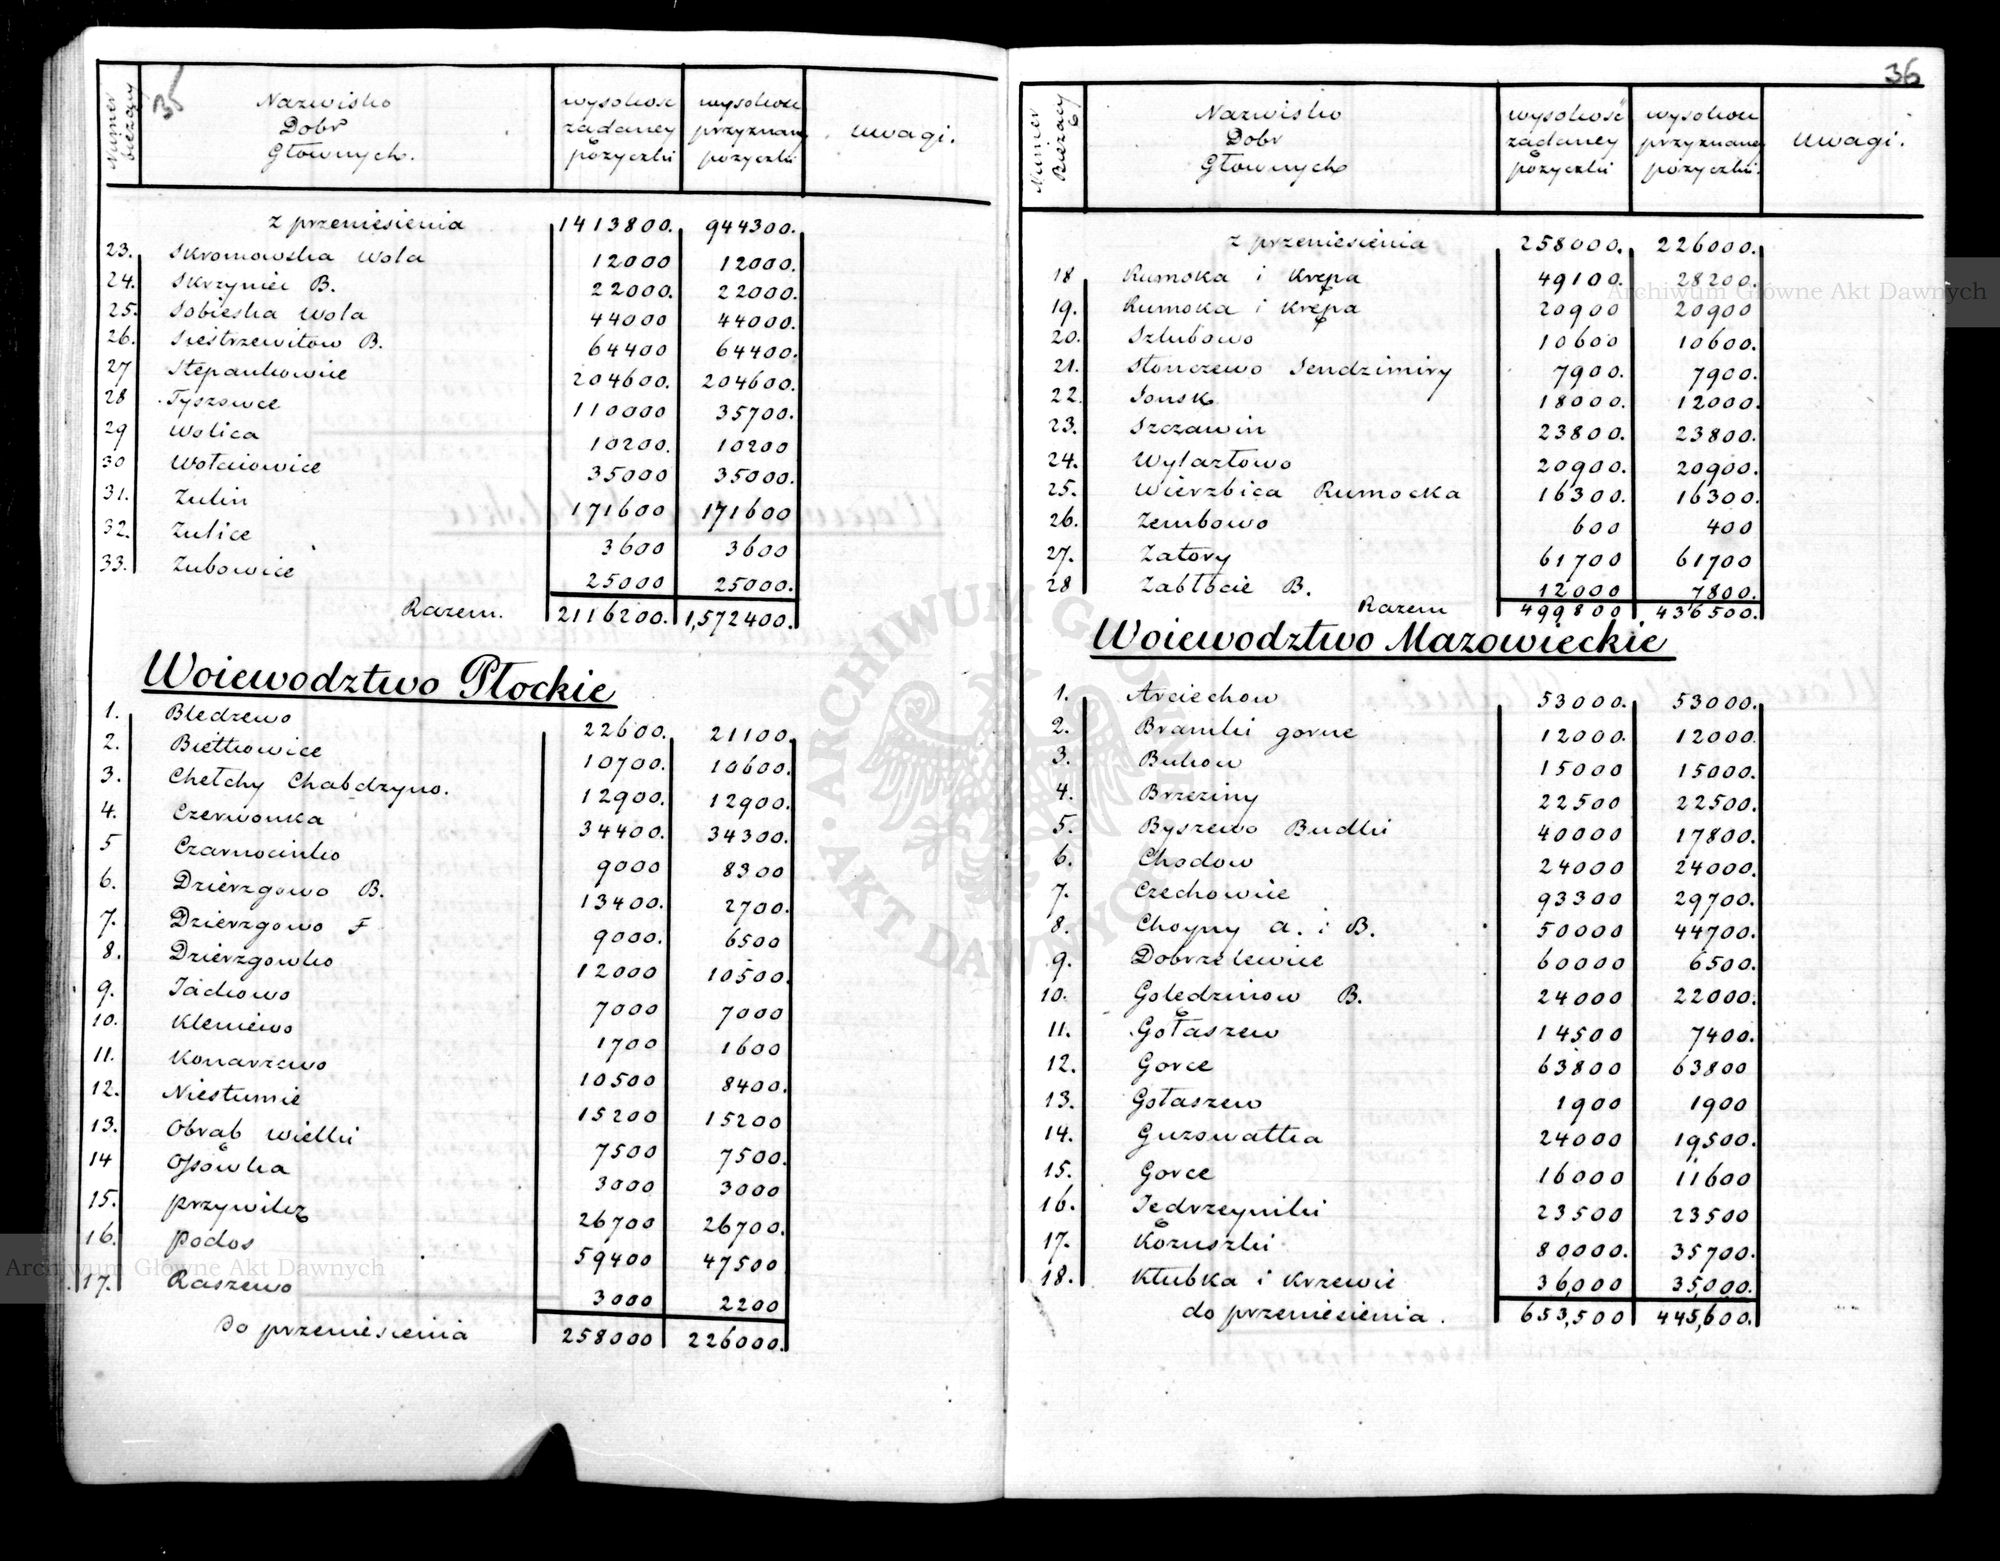 35
Numer bieżący | Nazwisko Dobr Głównych. | wysokosc żądaney pożyczki | wysokosc przyznaney pożyczki | uwagi.
z przeniesienia 1413800. 944300.
23. Skromowska Wola 12000 12000.
24. Skrzyniec B. 22000. 22000.
25. Sobieska Wola 44000 44000.
26. Siestrzewitow B. 64400 64400.
27 Stepankowice 204600. 204600.
28 Tyszowce 110000 35700.
29 Wolica 10200. 10200
30 Wołaiowice 35000 35000.
31. Zulin 171600 171600
32. Zulice 3600 3600
33. Zubowice 25000 25000.
Razem. 2116200. 1,572400.
Woiewodztwo Płockie
1. Bledzewo 22600. 21100.
2. Bietkowice 10700. 10600.
3. Chełchy Chabdzyno. 12900. 12900.
4. Czerwonka 34400. 34300.
5 Czarnocinko 9000 8300
6. Dzierzgowo B. 13400. 2700.
7. Dzierzgowo F 9000. 6500
8. Dzierzgowko 12000 10500.
9. Jackowo 7000 7000
10. Kleniewo 1700 1600
11. Konarzewo 10500 8400.
12. Niestumie 15200 15200
13. Obrąb wielki 7500 7500.
14 Ossówka 3000 3000
15. przywilcz 26700 26700.
16. Podos 59400 47500
17. Raszewo 3000 2200
Do przeniesienia 258000 226000.
36
Numer Bieżący | Nazwisko Dobr Głownych | wysokosc żądaney pożyczki | wysokosc przyznaney pożyczki. | uwagi.
z przeniesienia 258000. 226000.
18 Rumoka i Krępa 49100. 28200.
19. Rumoka i Krępa 20900 20900
20. Szlubowo 10600 10600.
21. Stonczewo Sendzimiry 7900. 7900.
22. Sonsk 18000. 12000.
23. Szczawin 23800. 23800.
24. Wylazłowo 20900. 20900.
25. Wierzbica Rumocka 16300. 16300.
26. Zembowo 600 400
27. Zatory 61700 61700
28 Zabłocie B. 12000 7800.
Razem 499800 436500.
Woiewodztwo Mazowieckie
1. Arciechow 53000. 53000.
2. Bramki gorne 12000. 12000.
3. Bukow 15000 15000.
4. Brzeziny 22500 22500.
5. Byszewo Budki 40000 17800.
6. Chodow 24000 24000.
7. Czechowice 93300 29700.
8. Choyny A. i B. 50000 44700.
9. Dobrzelewice 60000 6500.
10. Golędzinow B. 24000 22000.
11. Gołaszew 14500 7400.
12. Gorce 63800 63800
13. Gołaszew 1900 1900
14. Guzowatka 24000 19500.
15. Gorce 16000 11600
16. Jędrzeyniki 23500 23500
17. Kozuszki 80000. 35700.
18. Kłubka i Krzewie 36,000 35,000.
do przeniesienia. 653,500 445,600.
Archiwum Główne Akt Dawnych
Archiwum Główne Akt Dawnych
ARCHIWUM GŁÓWNE AKT DAWNYCH